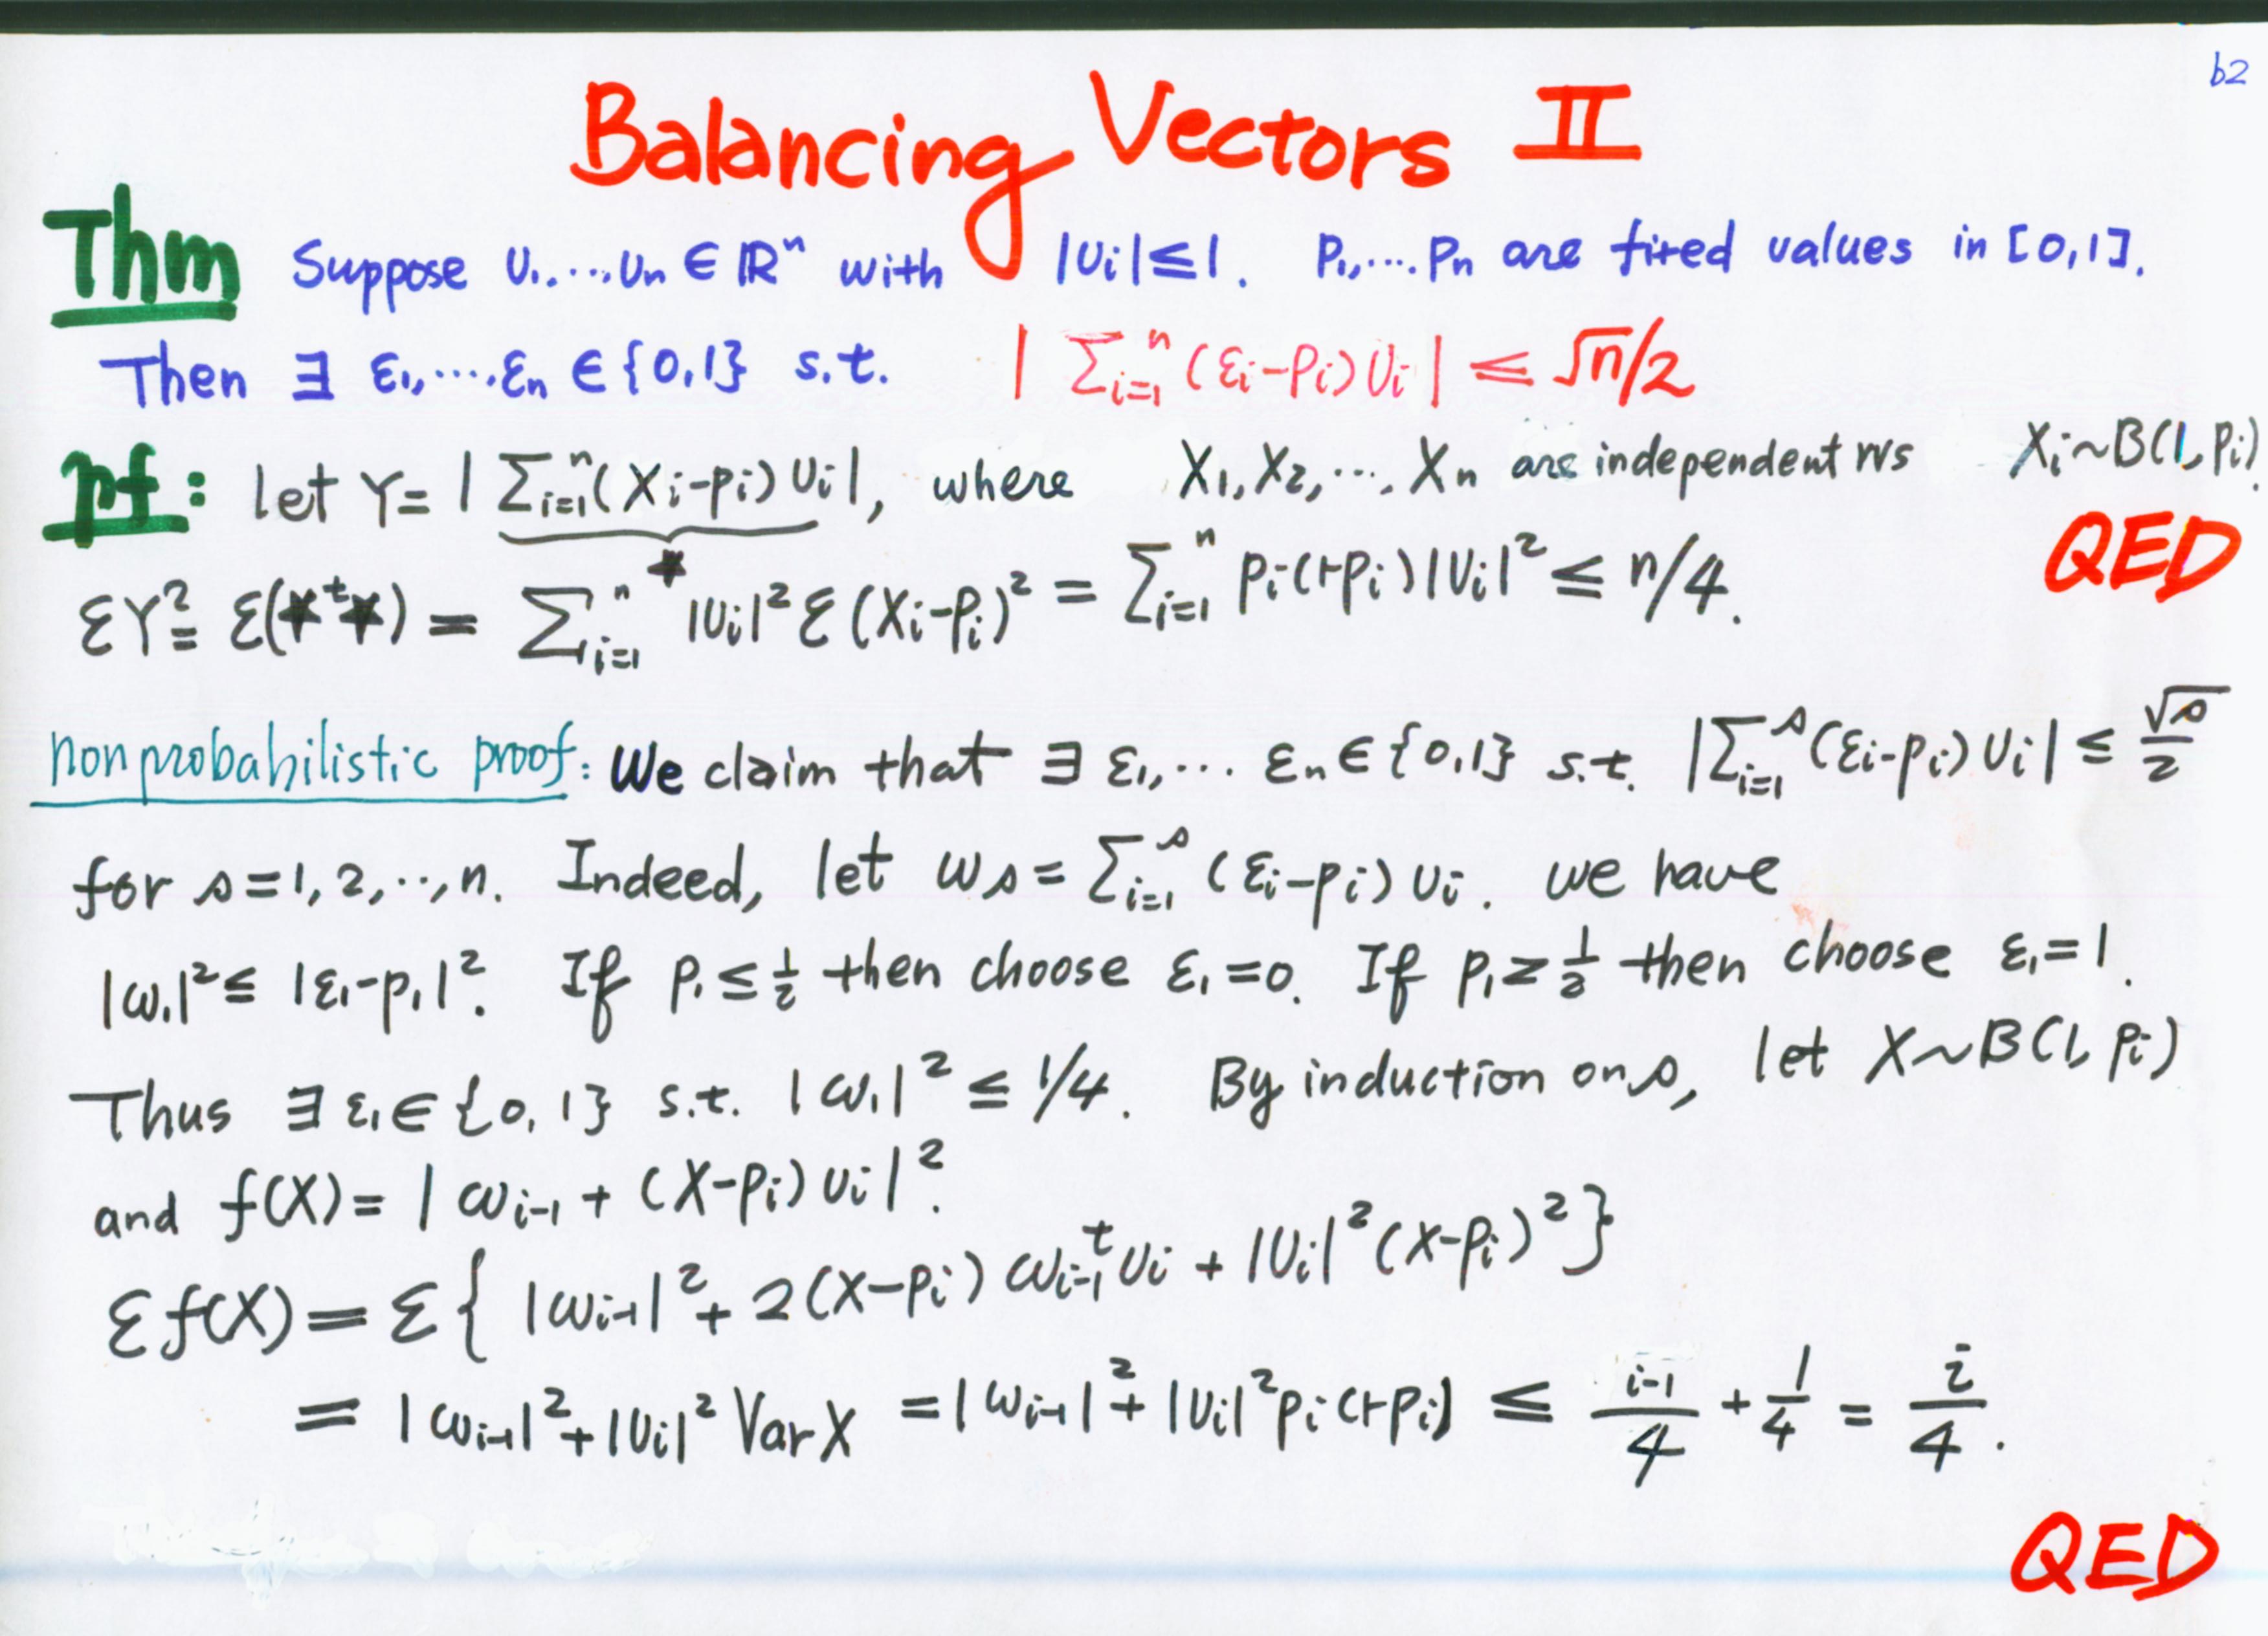 b2
Balancing Vectors II
Thm Suppose v₁,…,vₙ ∈ ℝⁿ with |vᵢ| ≤ 1. p₁,…pₙ are fixed values in [0,1].
Then ∃ ε₁,…,εₙ ∈ {0,1} s.t. | Σᵢ₌₁ⁿ (εᵢ-pᵢ) vᵢ | ≤ √n/2
pf: let Y = | Σᵢ₌₁ⁿ (Xᵢ-pᵢ) vᵢ |, where X₁, X₂, …, Xₙ are independent rvs Xᵢ ~ B(1, pᵢ).
★
QED
εY² = ε(★ᵗ★) = Σᵢ₌₁ⁿ |vᵢ|² ε (Xᵢ-pᵢ)² = Σᵢ₌₁ⁿ pᵢ(1-pᵢ)|vᵢ|² ≤ n/4.
nonprobabilistic proof: We claim that ∃ ε₁,… εₙ ∈ {0,1} s.t. |Σᵢ₌₁ˢ (εᵢ-pᵢ) vᵢ| ≤ √s/2
for s = 1, 2, .., n. Indeed, let ωₛ = Σᵢ₌₁ˢ (εᵢ-pᵢ) vᵢ. we have
|ω₁|² ≤ |ε₁-p₁|². If p₁ ≤ 1/2 then choose ε₁ = 0. If p₁ ≥ 1/2 then choose ε₁ = 1.
Thus ∃ ε₁ ∈ {0, 1} s.t. |ω₁|² ≤ 1/4. By induction on s, let X ~ B(1, pᵢ)
and f(X) = | ωᵢ₋₁ + (X-pᵢ) vᵢ |².
ε f(X) = ε { |ωᵢ₋₁|² + 2(X-pᵢ) ωᵢ₋₁ᵗ vᵢ + |vᵢ|² (X-pᵢ)² }
= |ωᵢ₋₁|² + |vᵢ|² Var X = |ωᵢ₋₁|² + |vᵢ|² pᵢ(1-pᵢ) ≤ (i-1)/4 + 1/4 = i/4.
QED